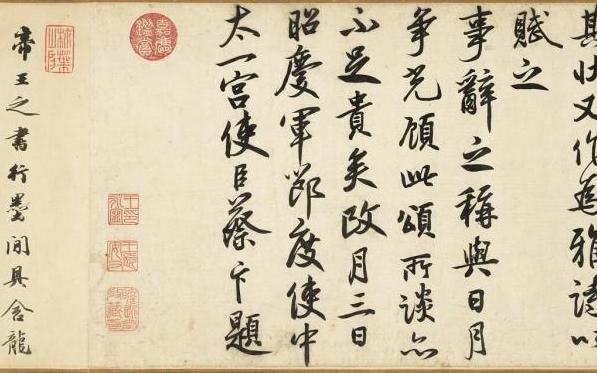 其壯又作為雅詩以
賦之
事辭之稱與日月
爭光顧此頌所談亦
不足貴矣政月三日
昭慶軍節度使中
太一宮使臣蔡卞題
嘉慶鑑賞
帝王之書行墨間具含龍